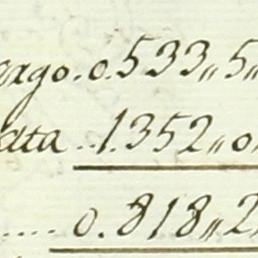 ergo. 0.533,,5,,
ata .. 1.352,,0,
..... 0.818,,2,